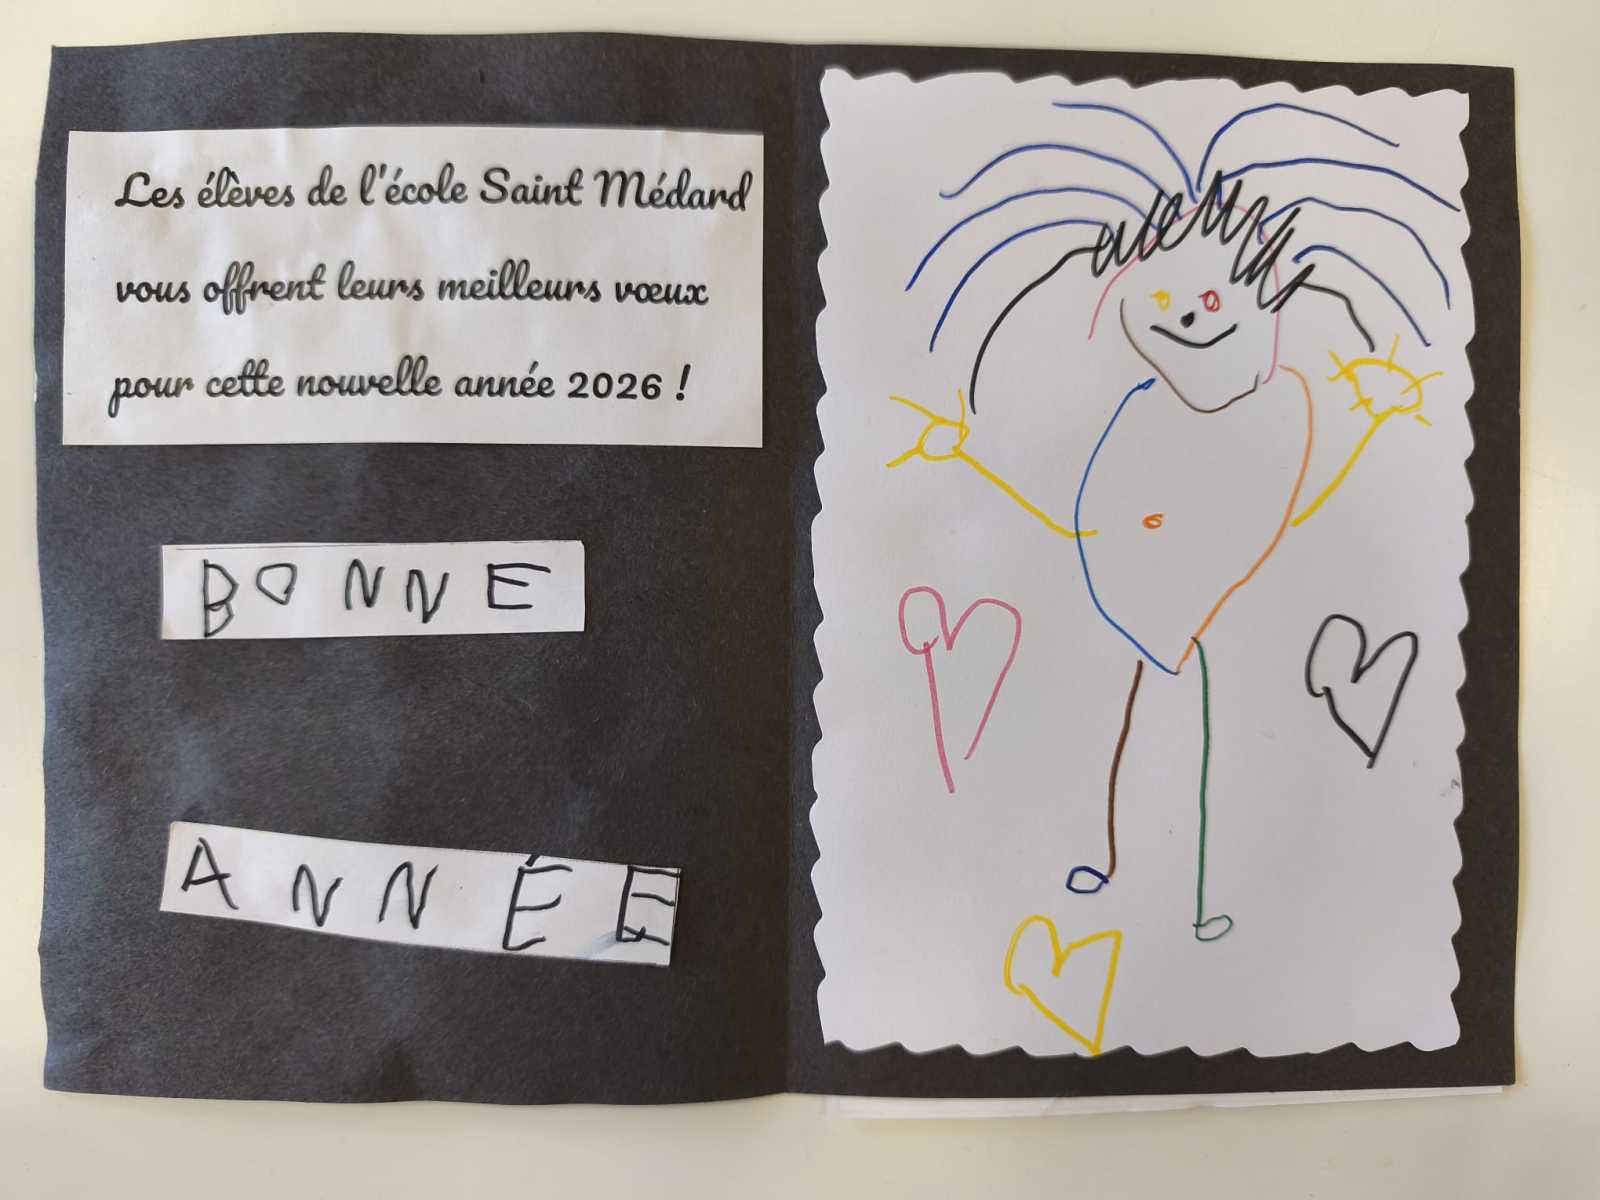 Les élèves de l'école Saint Médard
vous offrent leurs meilleurs vœux
pour cette nouvelle année 2026 !
BONNE
ANNÉE